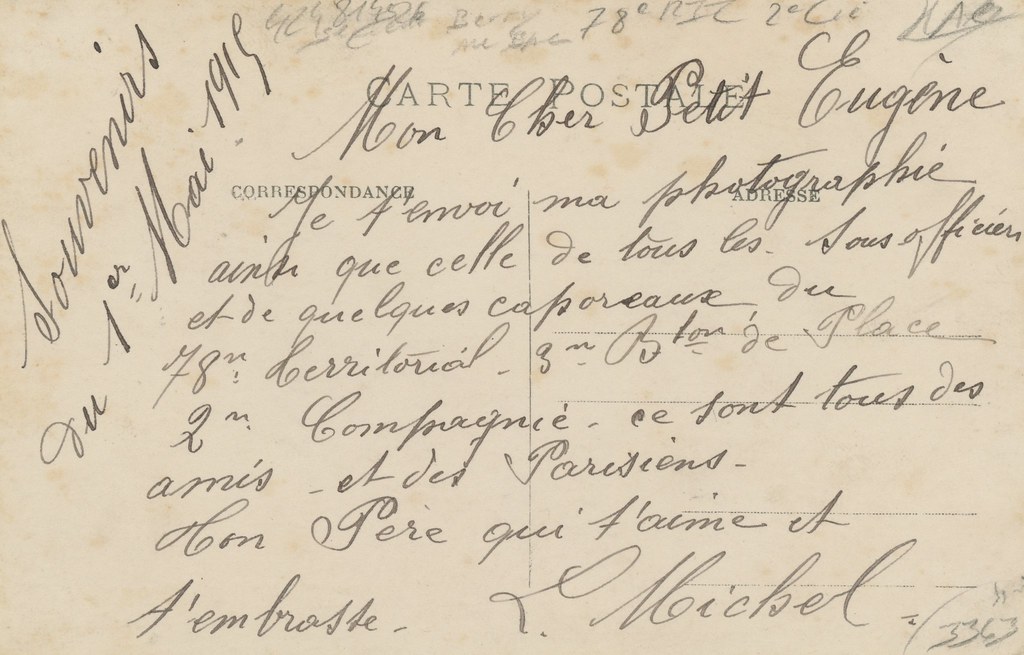 78e RIT 2e Cie
CARTE POSTALE
Souvenirs
du 1er Mai 1915
Mon Cher Petit Eugène
CORRESPONDANCE
ADRESSE
Je t'envoi ma photographie
ainsi que celle de tous les. Sous officiers
et de quelques caporeaux du
78n. territorial - 3n Bton de Place
2n. Compagnie - ce sont tous des
amis - et des Parisiens -
Ton Père qui t'aime et
t'embrasse -
L. Michel -
3363